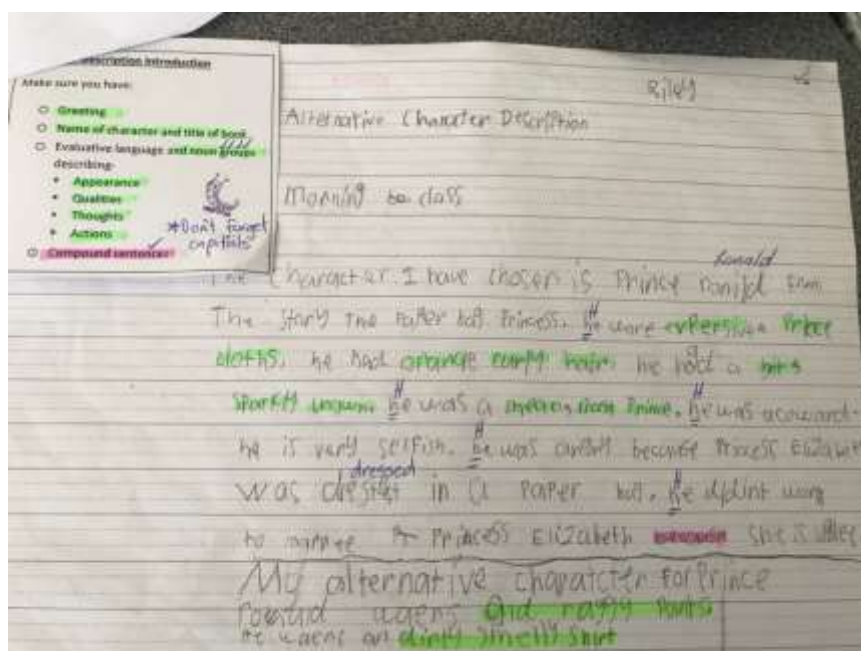 Description Introduction
Make sure you have:
Greeting
Name of character and title of book
Evaluative language and noun groups
describing:
Appearance
Qualities
Thoughts
Actions
*Don't forget
capitals
Compound sentences
Riley
Alternative Character Description
Morning class
Ronald
The character I have chosen is Prince from
The story The Paper bag Princess. H he wore expensive Prince
cloths. he had orange curly hair. he had a
sparkly H he was a Prince. H he was a coward.
he is very selfish. H he was because Princess Elizabeth
dressed
was in a Paper bag. H he
to Princess Elizabeth she is
My alternative character for Prince
Ronald and raggy Pants
he an dirty smelly shirt